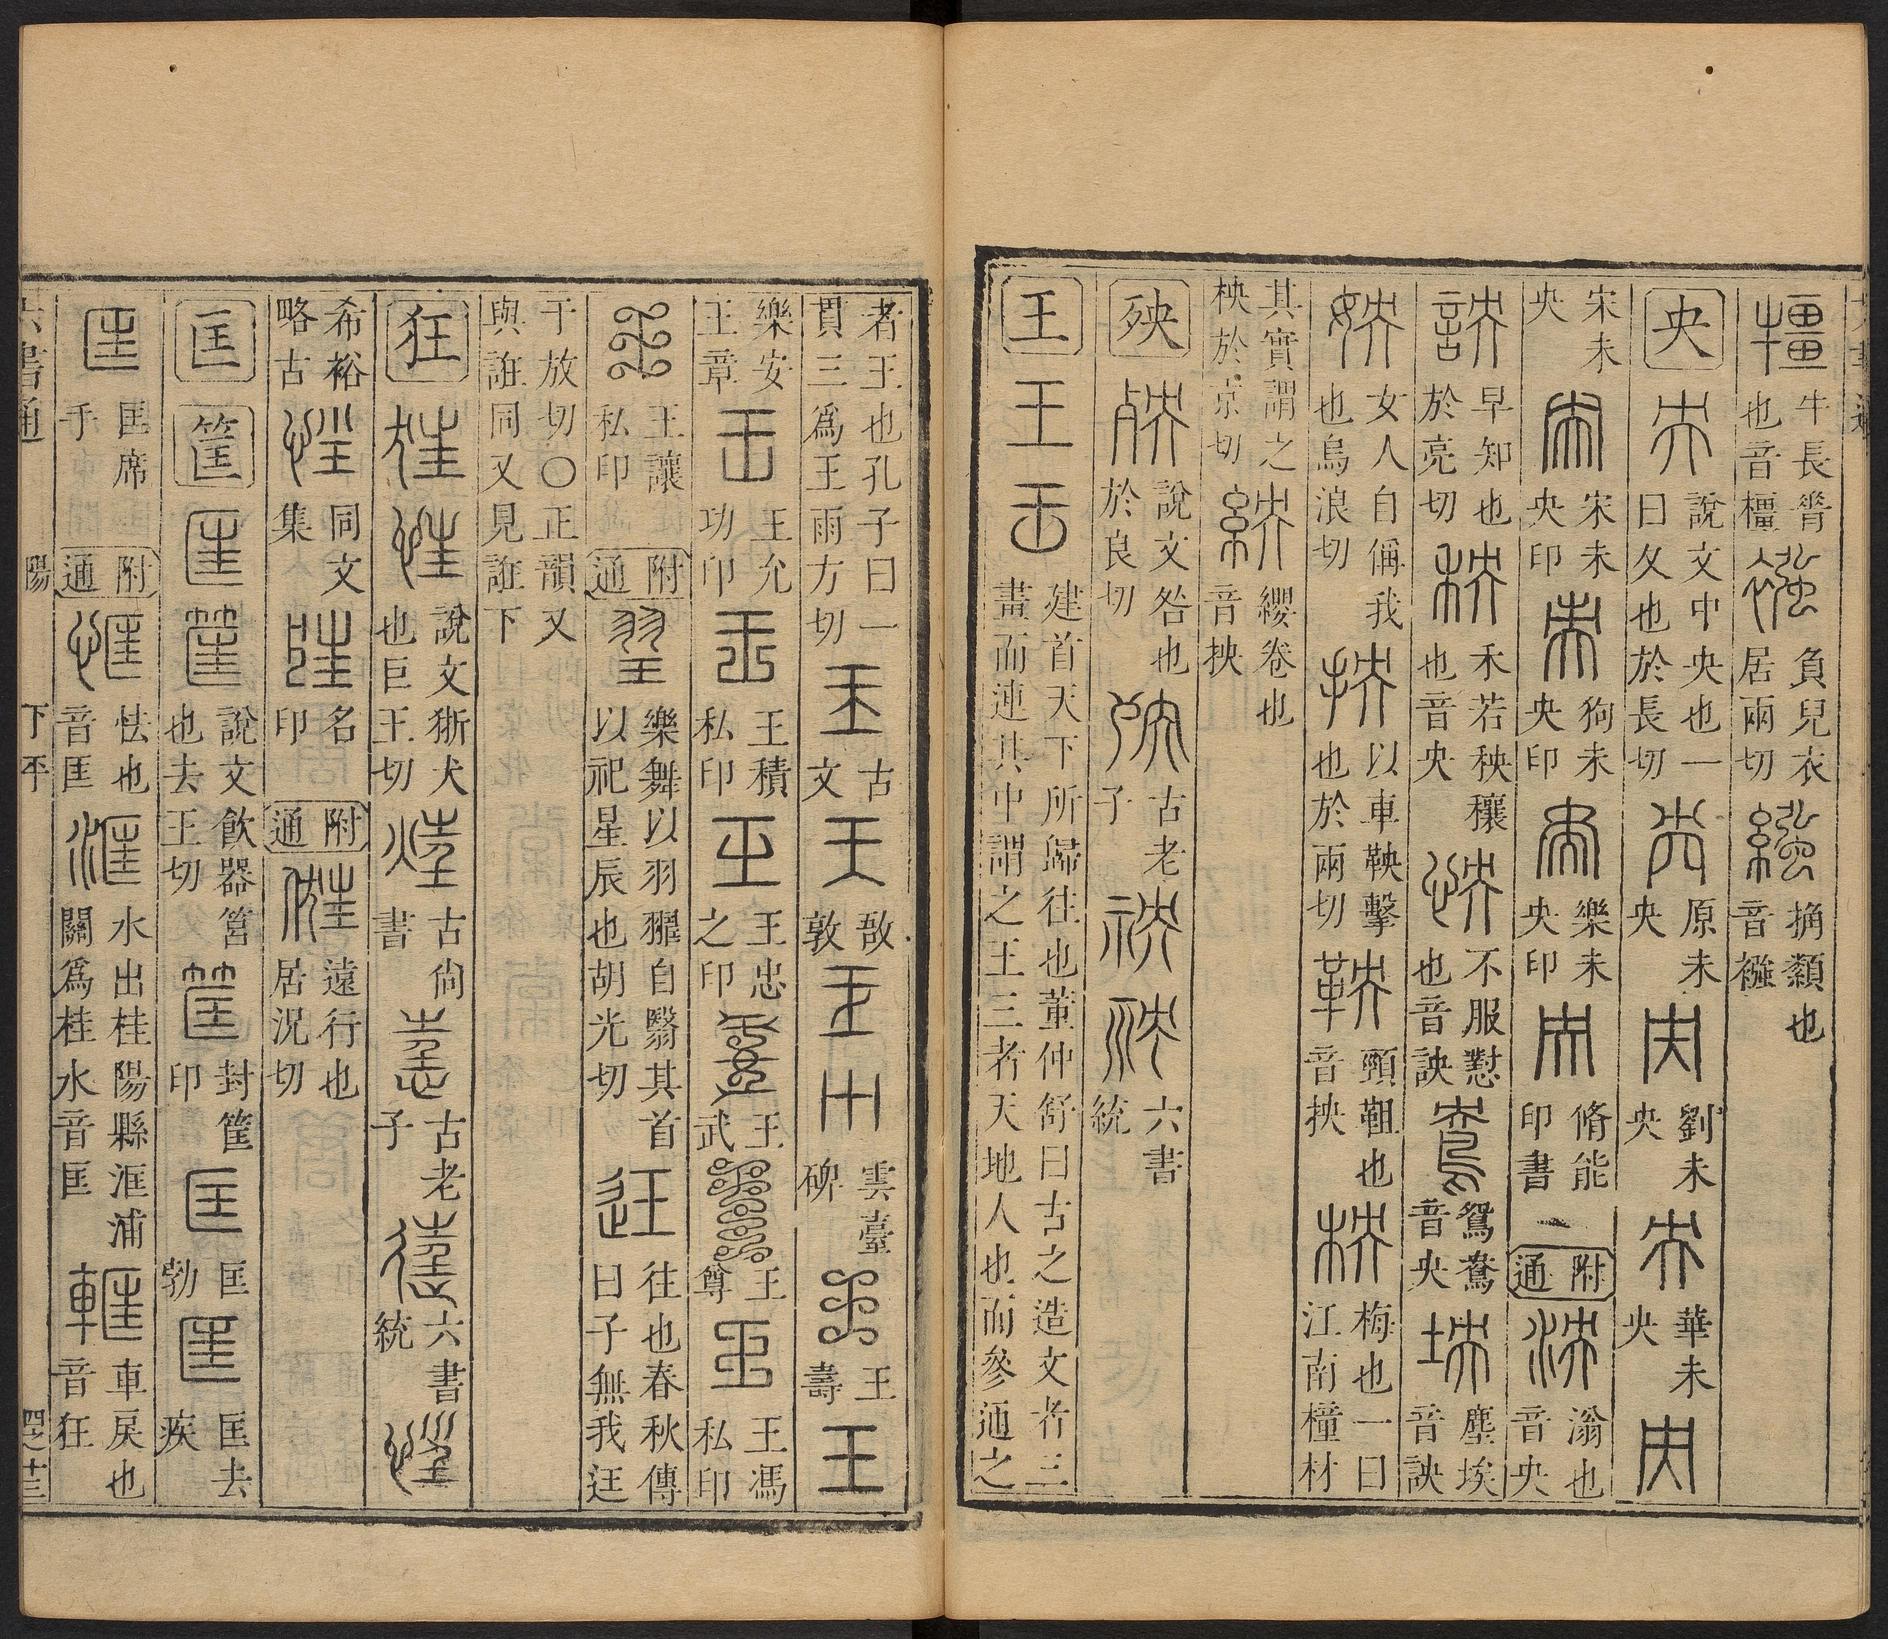 牛長脊也音橿 襁 負兒衣居兩切 繈 觕纇也音襁
央 央 說文中央也一曰久也於長切 央 原未央 央 劉未央 央 華未央 央
宋未央 央 宋未央印 央 狗未央印 央 樂未央印 央 脩能印書 附通 泱 滃也音央
詇 早知也於亮切 秧 禾若秧穰也音央 怏 不服懟也音詇 鴦 鴛鴦音央 坱 塵埃音詇
姎 女人自偁我也烏浪切 抰 以車鞅擊也於兩切 鞅 頸靼也音抰 柍 梅也一曰江南橦材
其實謂之柍於京切 紻 纓卷也音抰
殃 殃 說文咎也於良切 殃 古老子 殃 殃 六書統
王 王 王 建首天下所歸往也董仲舒曰古之造文者三畫而連其中謂之王三者天地人也而參通之
者王也孔子曰一貫三爲王雨方切 王 古文 王 敔敦 王 王 雲臺碑 王 王壽 王
樂安王章 王 王允功印 王 王積私印 王 王忠之印 王 王武 王 王尊 王 王馮私印
王 王讓私印 附通 樂舞以羽翿自翳其首以祀星辰也胡光切 迋 往也春秋傳曰子無我迋
于放切〇正韻又與誑同又見誑下
狂 狂 狂 說文狾犬也巨王切 狂 古尙書 狂 古老子 狂 六書統 狂
希裕略古 狂 同文集 狂 名印 附通 俇 遠行也居況切
匡 筐 匡 筐 說文飲器筥也去王切 筐 封筐印 匡 匡勃 匡 匡去疾
匡 匡席手 附通 恇 怯也音匡 洭 水出桂陽縣洭浦關爲桂水音匡 軭 車戾也音狂
六書通 陽 下平